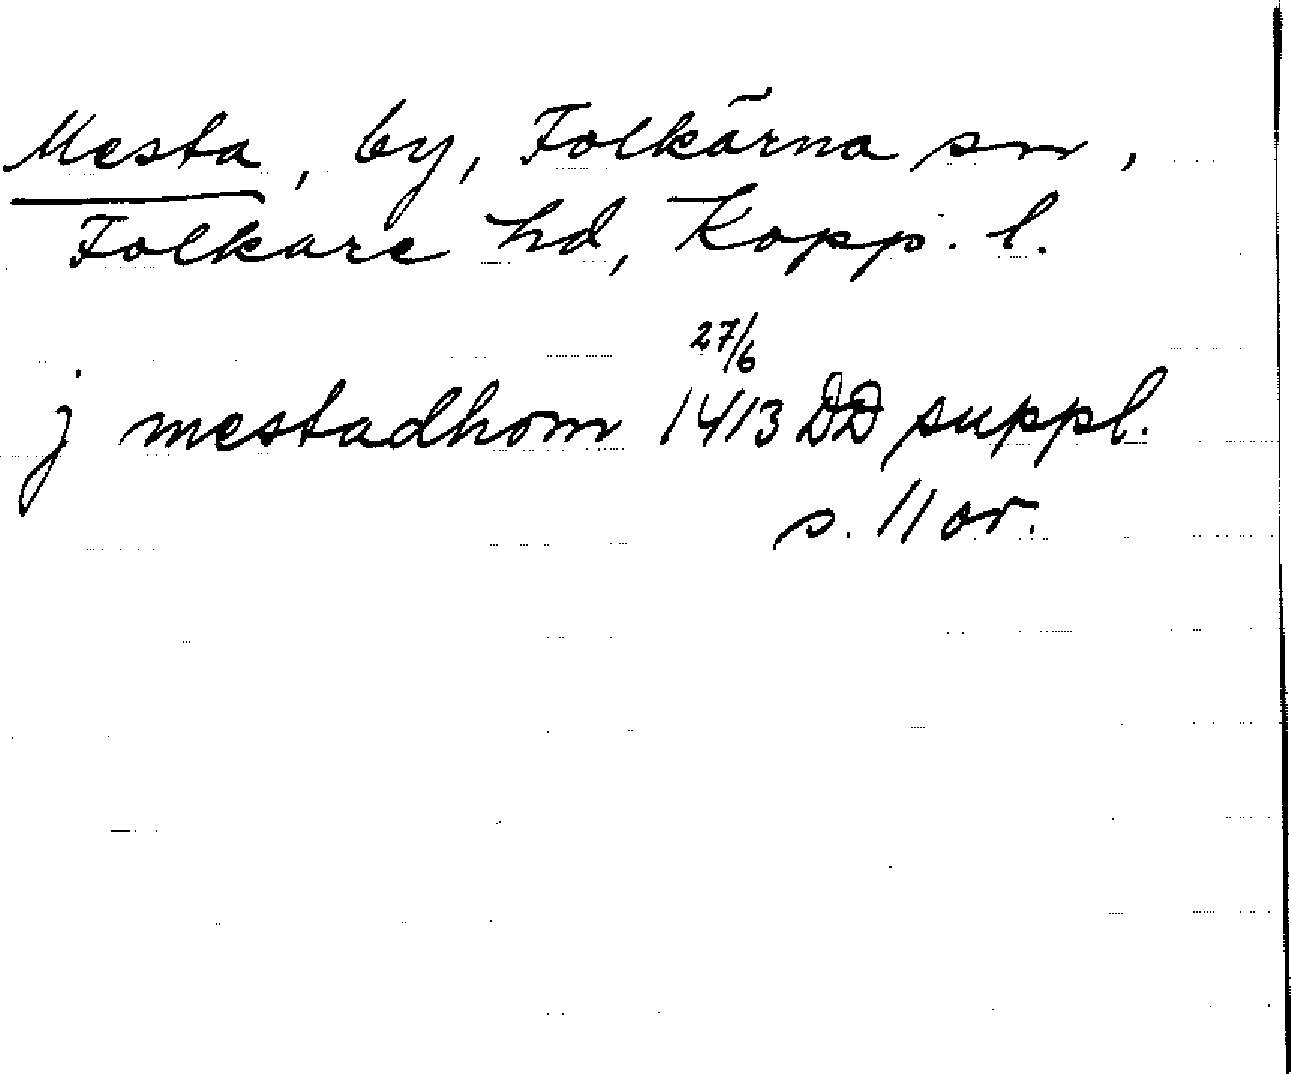 Mesta, by, Folkärna sn,
Folkare hd, Kopp. l.
27/6
j mestadhom 1413 DD suppl.
s. 11 or.